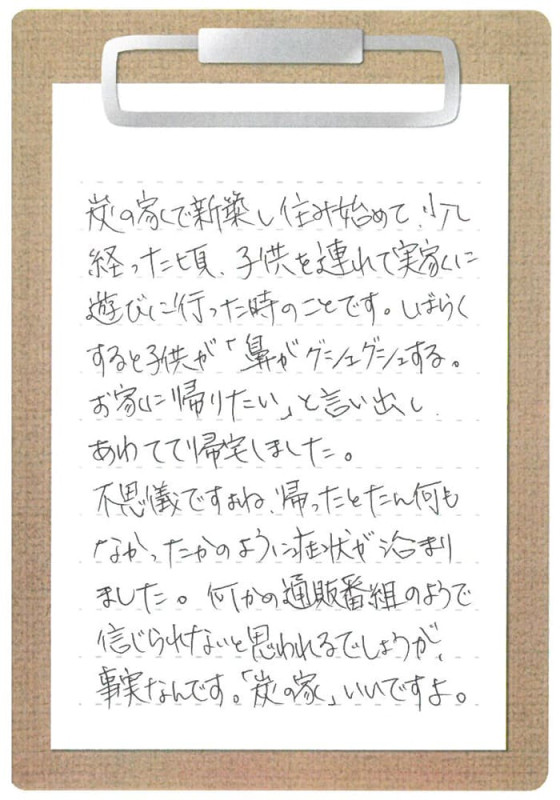 炭の家で新築し住み始めて、少し
経った頃、子供を連れて実家に
遊びに行った時のことです。しばらく
すると子供が「鼻がグシュグシュする。
お家に帰りたい」と言い出し、
あわてて帰宅しました。
不思議ですよね、帰ったとたん何も
なかったかのように症状が治まり
ました。何かの通販番組のようで
信じられないと思われるでしょうが、
事実なんです。「炭の家」いいですよ。